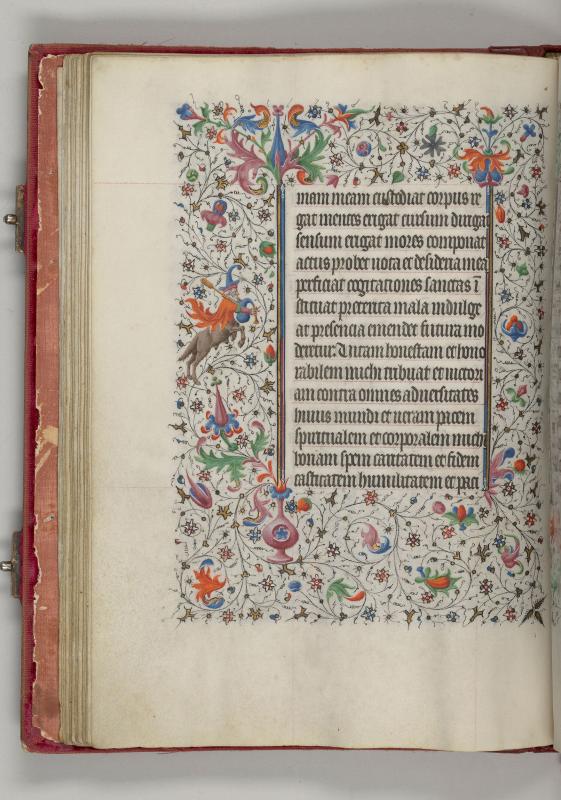 mam meam custodiat corpus re
gat mentes erigat cursum dirigat
sensum erigat mores componat
actus probet uota et desideria mea
perficiat cogitationes sanctas ī
stituat preterita mala indulge
at presencia emendet futura mo
deretur. Uitam honestam et hono
rabilem michi tribuat et uictori
am contra omnes aduersitates
huius mundi et ueram pacem
spiritualem et corporalem mich
bonam spem caritatem et fidem
castitatem humilitatem et paci